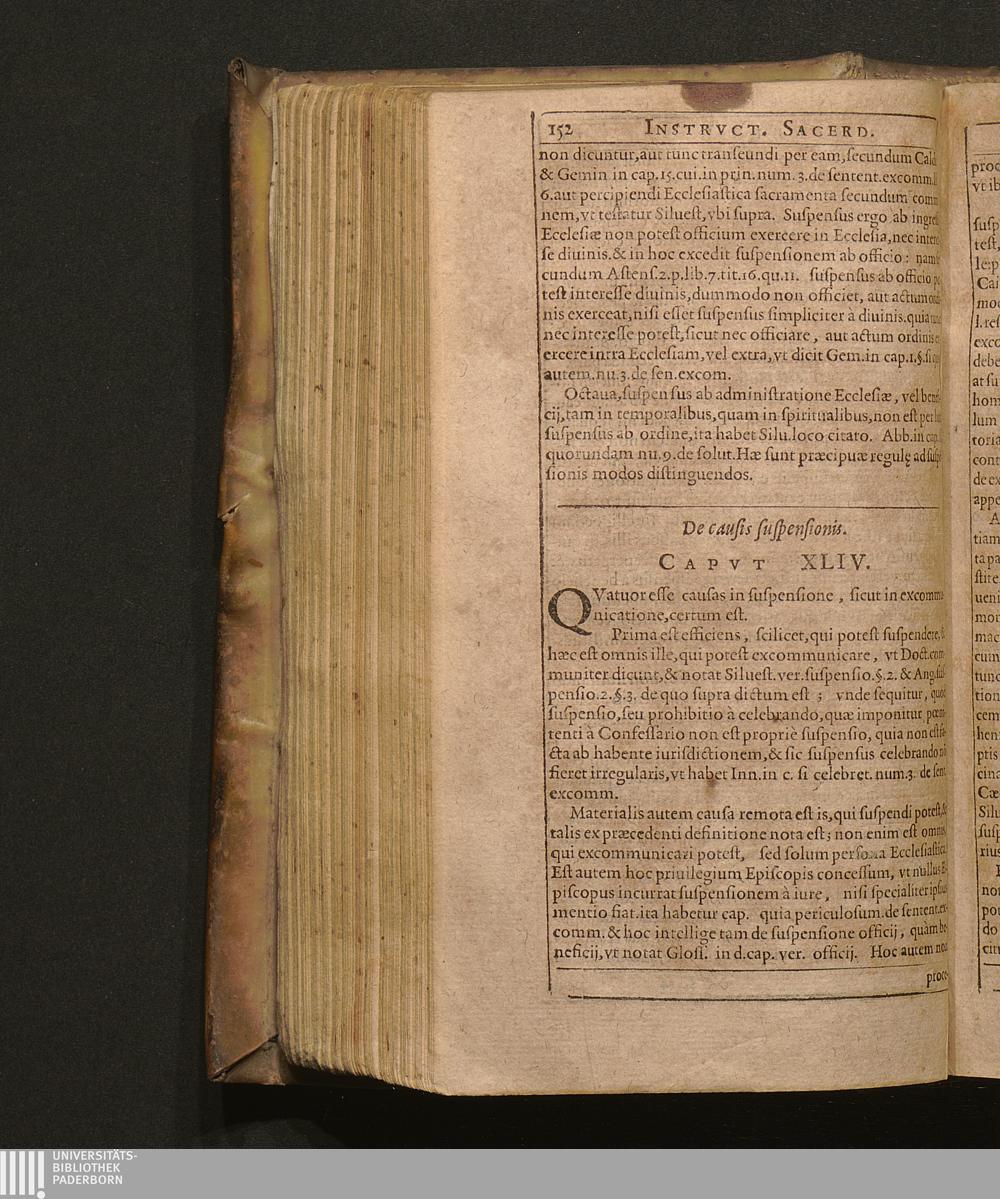 152 INSTRVCT. SACERD.
non dicuntur,aut tunc tranſeundi per eam,ſecundum
& Gemin in cap.15.cui.in prin.num.3.de ſentent.excomm.
6.aut percipiendi Eccleſiaſtica ſacramenta ſecundum
nem,vt teſtatur Silueſt,vbi ſupra. Suſpenſus ergo ab
Eccleſiæ non poteſt officium exercere in Eccleſia,nec
ſe diuinis.& in hoc excedit ſuſpenſionem ab officio: nam
cundum Aſtenſ.2.p.lib.7.tit.16.qu.11. ſuſpenſus ab officio
teſt intereſſe diuinis,dummodo non officiet, aut actum
nis exerceat,niſi eſſet ſuſpenſus ſimpliciter à diuinis.quia
nec intereſſe poteſt,ſicut nec officiare, aut actum ordinis
ercere intra Eccleſiam,vel extra,vt dicit Gem.in cap.1.§.ſi
autem.nu.3.de ſen.excom.
Octaua,ſuſpenſus ab adminiſtratione Eccleſiæ, vel
cij,tam in temporalibus,quam in ſpiritualibus,non eſt per
ſuſpenſus ab ordine,ita habet Silu.loco citato. Abb.in
quorundam nu.9.de ſolut.Hæ ſunt præcipuæ regulę ad
ſionis modos diſtinguendos.
De cauſis ſuſpenſionis.
CAPVT XLIV.
QVatuor eſſe cauſas in ſuſpenſione, ſicut in
nicatione,certum eſt.
Prima eſt efficiens, ſcilicet,qui poteſt ſuſpendere,
hæc eſt omnis ille,qui poteſt excommunicare, vt Doct.com
muniter dicunt,& notat Silueſt.ver.ſuſpenſio.§.2. & Ang.ſuſ-
penſio.2.§.3. de quo ſupra dictum eſt; vnde ſequitur, quod
ſuſpenſio,ſeu prohibitio à celebrando,quæ imponitur pœni-
tenti à Confeſſario non eſt propriè ſuſpenſio, quia non eſt fa-
cta ab habente iurisdictionem,& ſic ſuſpenſus celebrando
fieret irregularis,vt habet Inn.in c. ſi celebret. num.3. de ſent.
excomm.
Materialis autem cauſa remota eſt is,qui ſuſpendi poteſt,&
talis ex præcedenti definitione nota eſt; non enim eſt omnis,
qui excommunicari poteſt, ſed ſolum perſona Eccleſiaſtica
Eſt autem hoc priuilegium Epiſcopis conceſſum, vt nullus E-
piſcopus incurrat ſuſpenſionem à iure, niſi ſpecialiter ipſius
mentio fiat.ita habetur cap. quia periculoſum.de ſentent.ex-
comm. & hoc intellige tam de ſuſpenſione officij, quàm be-
neficij,vt notat Gloſſ. in d.cap. ver. officij. Hoc autem non
proce-
proc
vt ib
ſuſp
teſt,
le:p
Cai
mod
l.reſ
exco
debe
at ſu
hom
lum
toria
cont
de ex
appe
A
tiam
ta pa
ſtite
ueni
mor
mac
cum
tunc
tion
cem
hen
ptis
cina
Cæ
Silu
ſuſp
rius
no
pot
do
citu
UNIVERSITÄTS-
BIBLIOTHEK
PADERBORN